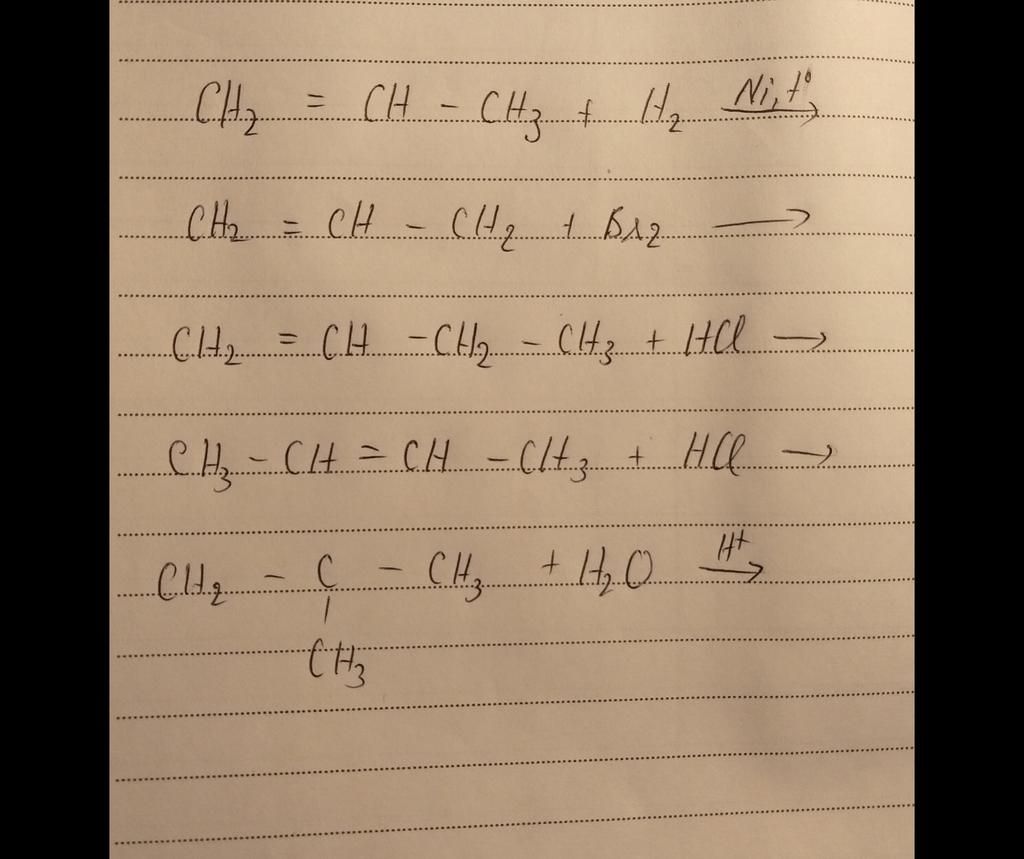 CH₂ = CH - CH₃ + H₂ —Ni, t°→
CH₂ = CH - CH₂ + Br₂ →
CH₂ = CH - CH₂ - CH₃ + HCl →
CH₃ - CH = CH - CH₃ + HCl →
CH₂ - C - CH₃ + H₂O —H⁺→
|
CH₃